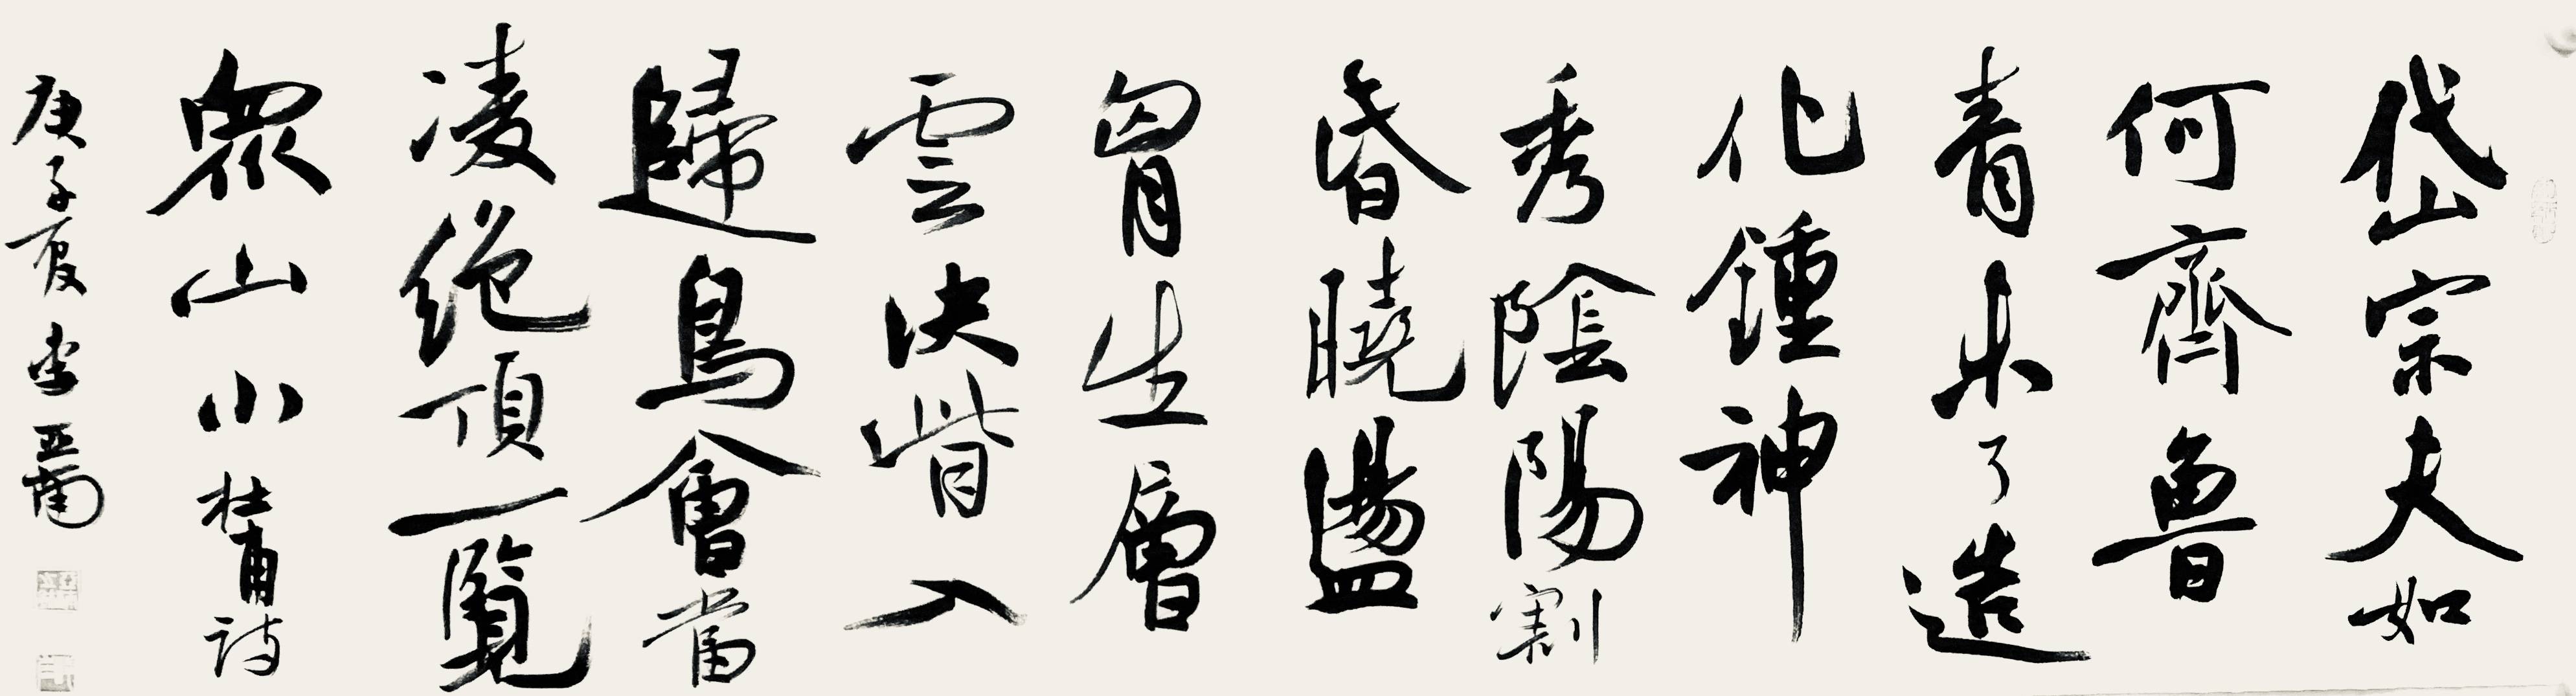 岱宗夫如
何齊魯
青未了造
化鍾神
秀陰陽割
昏曉盪
胷生層
雲決眥入
歸鳥會當
凌絕頂一覽
眾山小杜甫詩
庚子夏